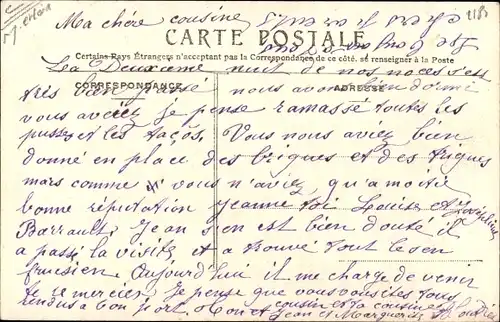 Ma chère cousine
CARTE POSTALE
Certains Pays Étrangers n'acceptant pas la Correspondance de ce côté, se renseigner à la Poste
CORRESPONDANCE
ADRESSE
La Deuxième nuit de nos noces s'est
très bien passé nous avons bien dormi
vous aviez je pense ramassé toutes les
puces et les Vous nous aviez bien
donné en place des briques et des
mars comme si vous n'aviez qu'a moitié
bonne réputation Jeanne toi Louise et
Barrault. Jean s'en est bien douté il
a passé la visite et a trouvé tout le sen
Aujourd'hui il me charge de venir
te remercier. Je pense que vous vous êtes tous
rendus a bon port. cousin et ta cousine
Jean et Marguerite